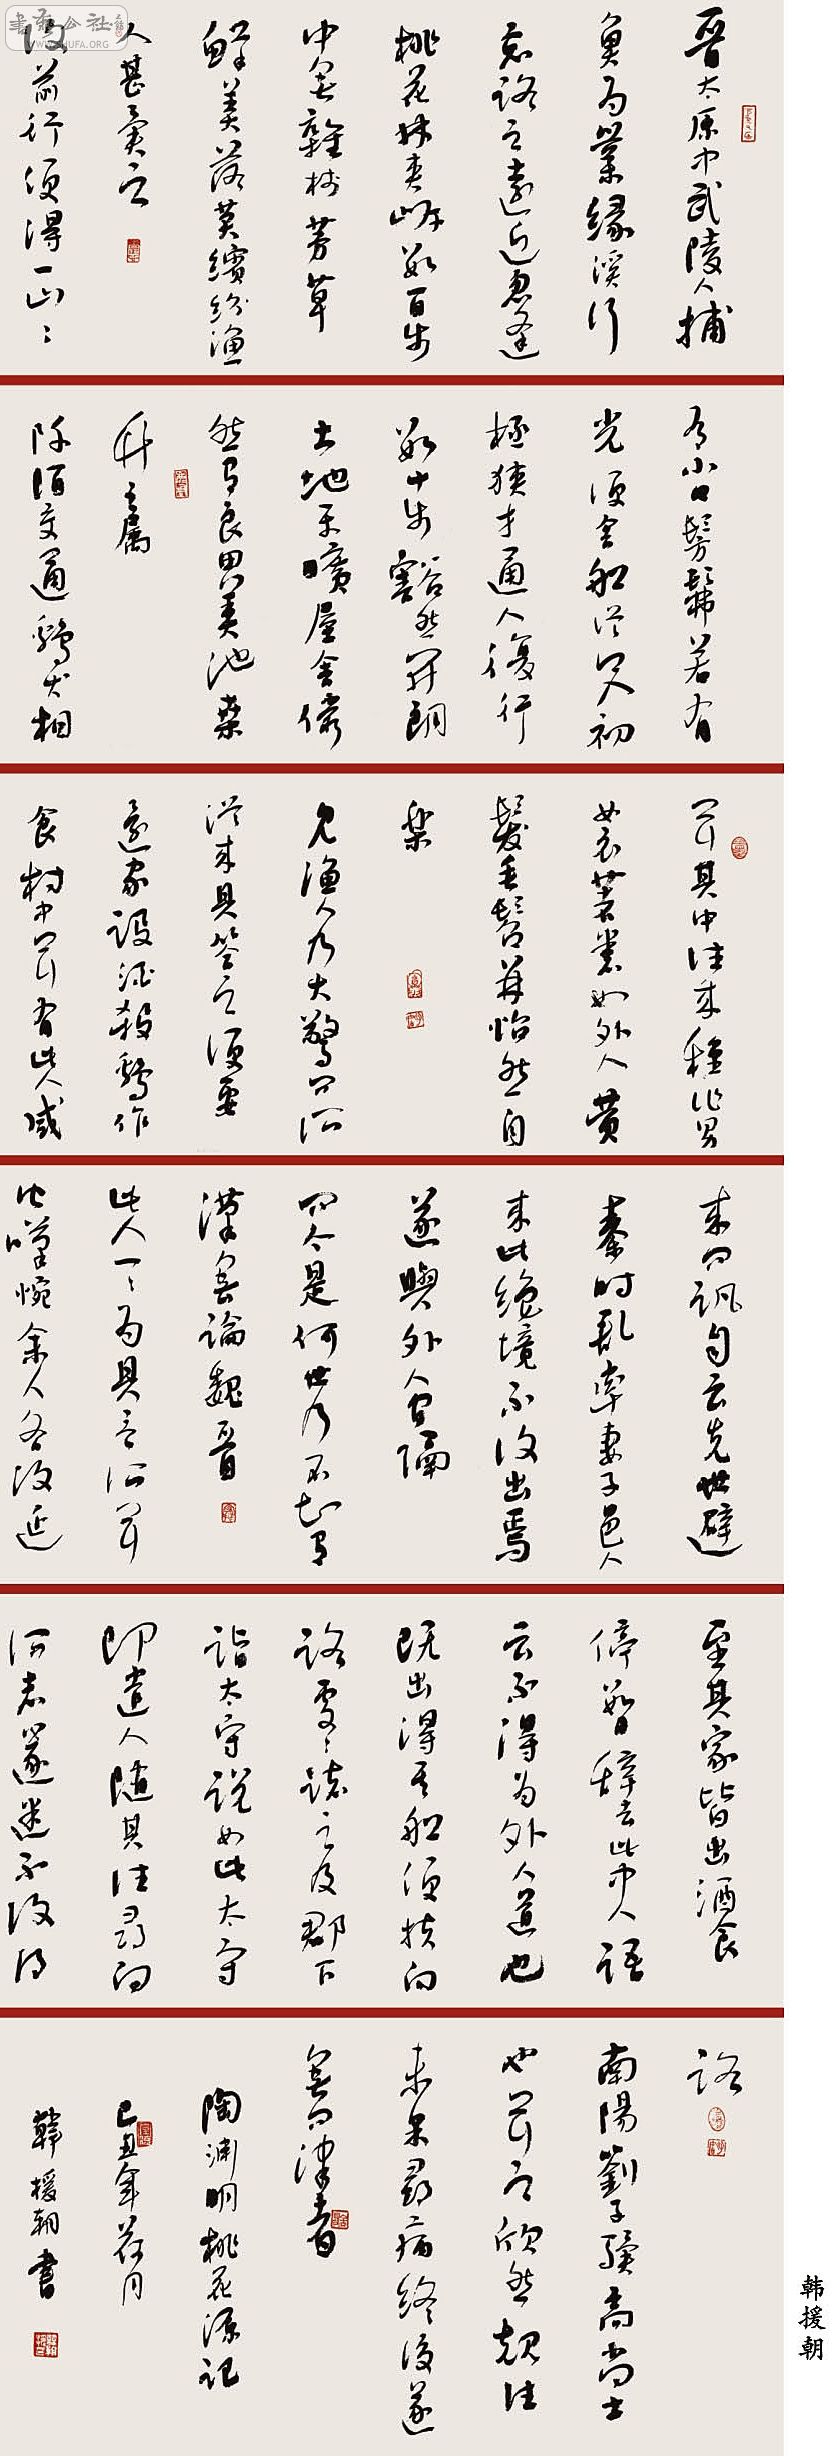 書法公社
WWW.SHUFA.ORG
晋太原中武陵人捕
魚为業缘溪行
忘路之遠近忽逢
桃花林夹岸數百步
中無雜树芳草
鲜美落英繽纷渔
人甚異之
復前行便得一山〻
有小口髣髴若有
光便舍船從口入初
極狹才通人復行
數十步豁然開朗
土地平曠屋舍儼
然有良田美池桑
竹之属
阡陌交通雞犬相
聞其中往来種作男
女衣著悉如外人黄
髮垂髫並怡然自
樂
見渔人乃大驚問所
從来具答之便要
還家设酒殺雞作
食村中聞有此人咸
来問訊自云先世避
秦时乱率妻子邑人
来此绝境不復出焉
遂與外人间隔
問今是何世乃不知有
漢無論魏晋
此人一〻为具言所聞
皆嘆惋余人各復延
至其家皆出酒食
停數日辞去此中人語
云不得为外人道也
既出得其船便扶向
路處〻誌之及郡下
詣太守說如此太守
即遣人随其往尋向
所志遂迷不復得
路
南陽劉子驥高尚士
也聞之欣然規往
未果尋病終後遂
無問津者
陶渊明桃花源记
己丑年荷月
韓援朝書
韩援朝